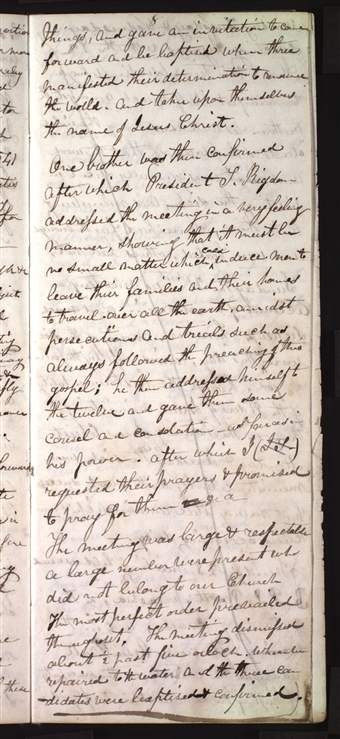 8
things, and gave an invitation to come
forward and be baptised when three
manifested their determination to renounce
the world. and take upon themselves
the name of Jesus Christ.
One brother was then confirmed
after which President S. Rigdon
addressed the meeting in a very feeling
manner, showing that it must be
no small matter which could induce men to
leave their families and their homes
to travel over all the earth, amidst
persecutions and trials such as
always followed the preaching of this
gospel; he then addressed himself to
the twelve and gave them some
council and consolation as far as in
his power. after which I
requested their prayers & promised
to pray for them &
The meeting was large & respectable
a large number were present who
did not belong to our Church
The most perfect order prevailed
throughout. The meeting dismissed
about ½ past five oclock. when we
repaired to the water and the three can
didates were baptised & confirmed.